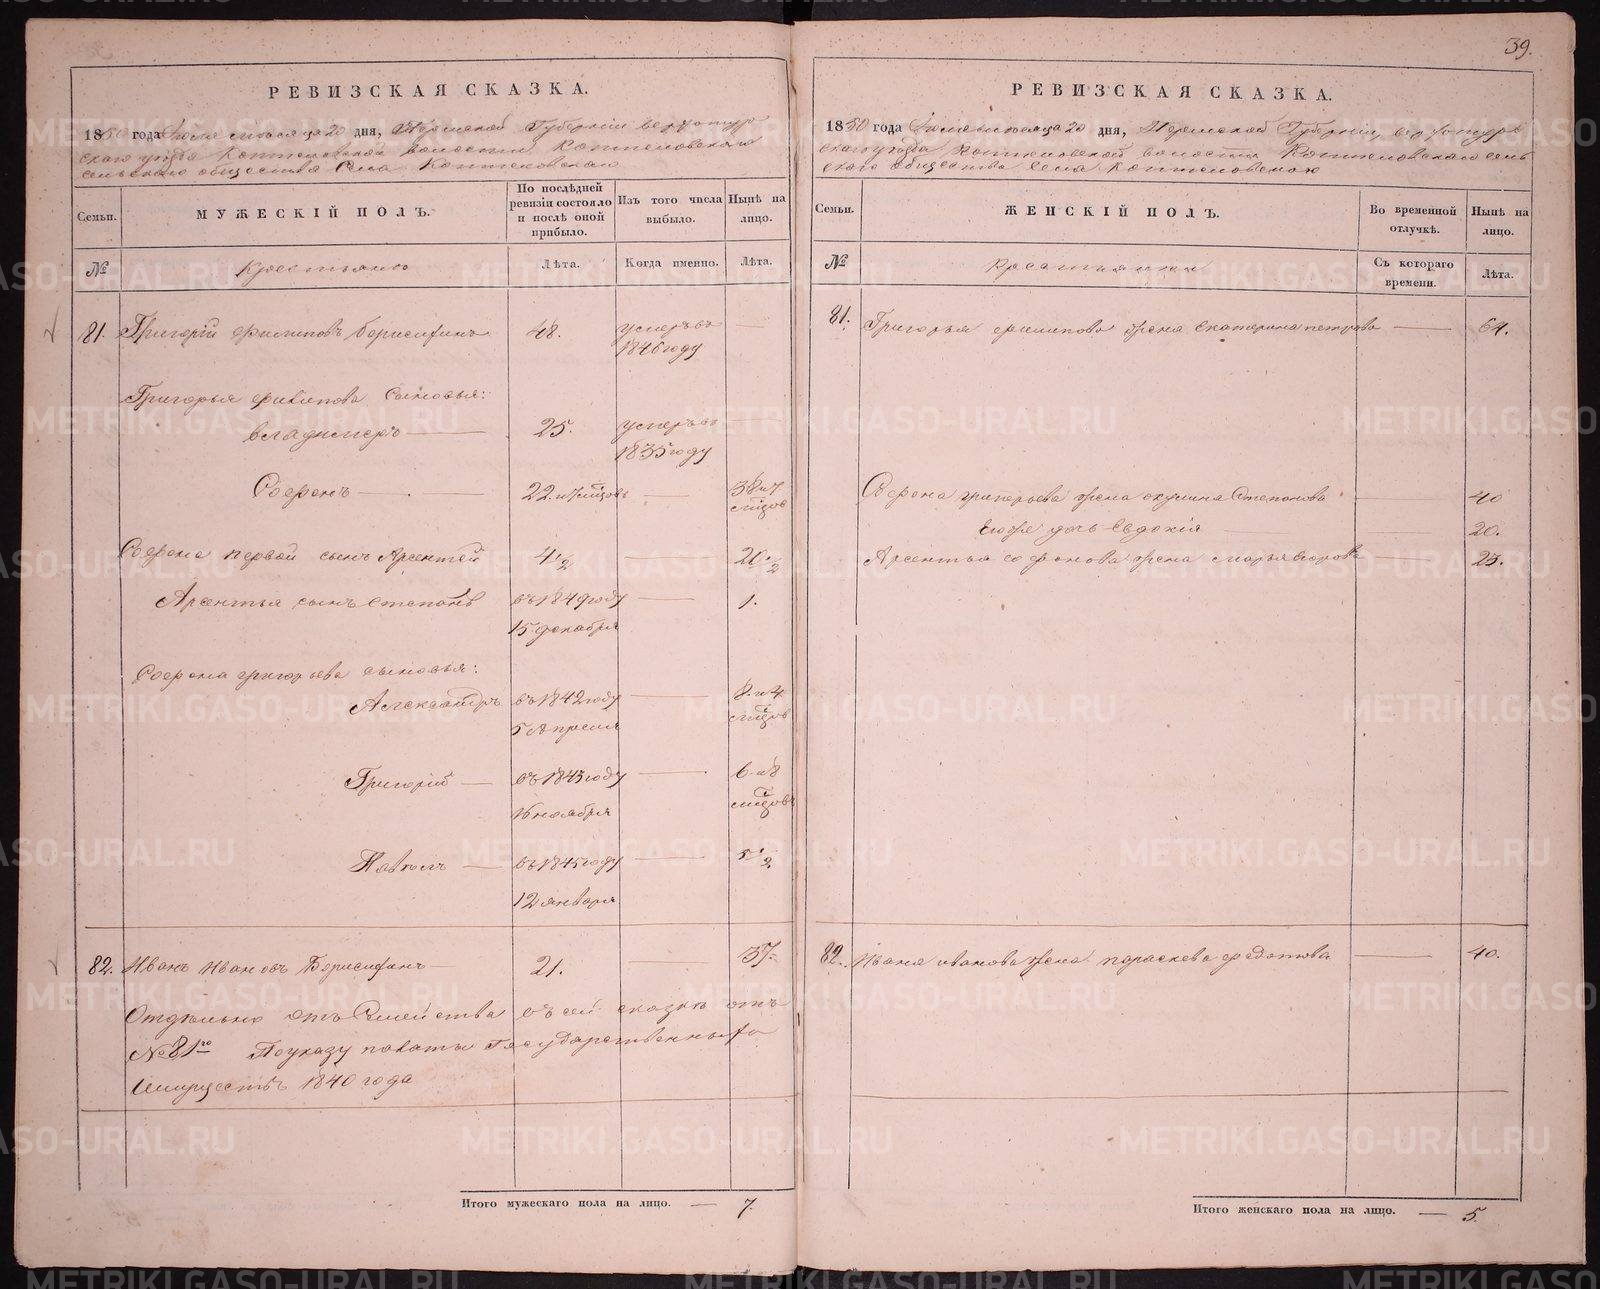 39.
РЕВИЗСКАЯ СКАЗКА.
1850 года Июля месяца 20 дня, Пермской Губернiи верхотур
скаго уезда Коптеловской волости Коптеловскаго
сельскаго общества Села Коптеловскаго
Семьи.
МУЖЕСКIЙ ПОЛЪ.
По послѣдней ревизiи состояло и послѣ оной прибыло.
Изъ того числа выбыло.
Нынѣ на лицо.
№
Крестьяне
Лѣта.
Когда именно.
Лѣта.
81. Григорiй Филиповъ Борисихинъ 48. умеръ въ
1846 году
Григорья Филипова Сыновья:
Владимеръ 25. умеръ въ
1835 году
Софронъ 22. и 7 мцовъ 38 и 7
мцов
Софрона первой сынъ Арсентей 4 1/2 20 1/2
Арсентья сынъ Степанъ въ 1849 году 1.
15 декабря
Софрона григорьева сыновья:
Александръ въ 1842 году 8. и 4
5 Апреля мцов
Григорiй въ 1843 году 6. и 8
16 ноября мцовъ
Павелъ въ 1845 году 5 1/2
12 января
82. Иванъ Ивановъ Борисихинъ 21. 37.
Отдельно отъ Семейства въ сей сказке отъ
№ 81го По указу палаты Государственныхъ
Имуществъ 1840 года
Итого мужескаго пола на лицо. — 7.
РЕВИЗСКАЯ СКАЗКА.
1850 года Июля месяца 20 дня, Пермской Губернiи, верхотур
скаго уезда Коптеловской волости Коптеловскаго сель
скаго общества Села Коптеловскаго
Семьи.
ЖЕНСКIЙ ПОЛЪ.
Во временной отлучкѣ.
Нынѣ на лицо.
№
Крестьянки
Съ котораго времени.
Лѣта.
81. Григорья филипова жена Екатерина петрова 64.
Софрона григорьева жена акулина Степанова 40
Его же дочь Евдокiя 20.
Арсентья софонова жена марья 25.
82. Ивана иванова жена параскева федотова 40.
Итого женскаго пола на лицо. — 5.
METRIKI.GASO-URAL.RU